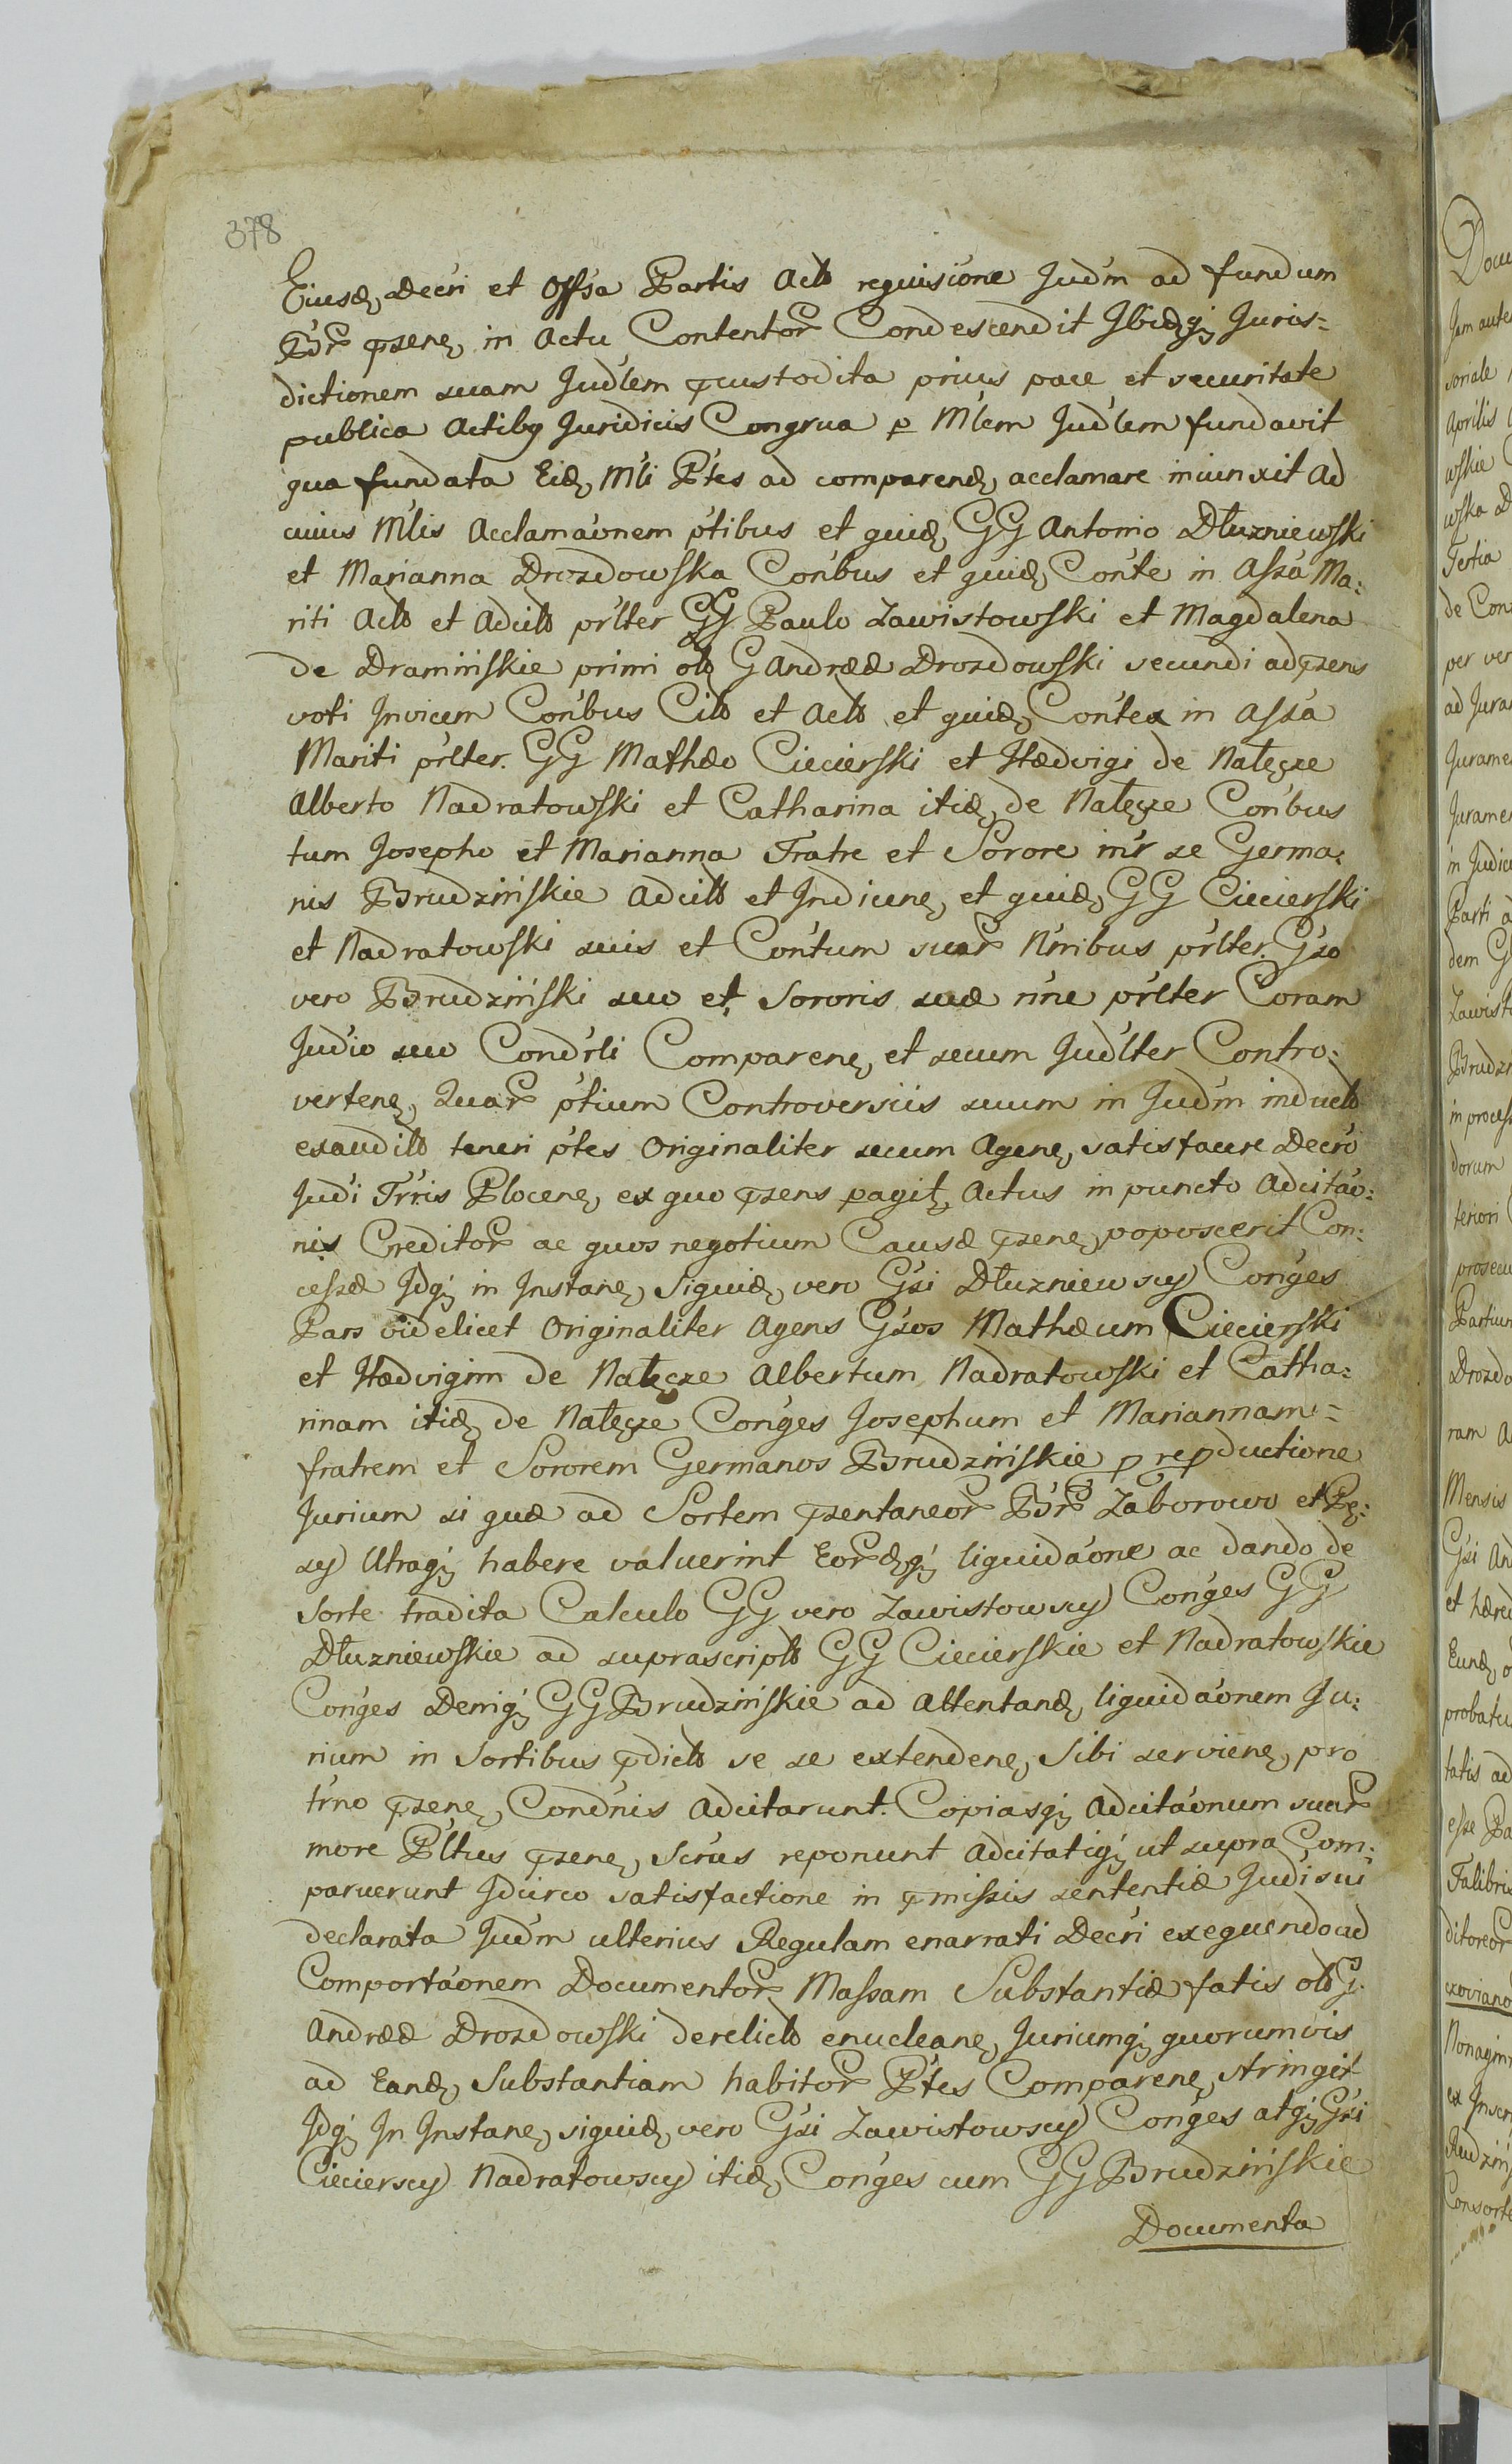 378
Eiusd, Decri et Offsa Partis Acto requisitione Judm ad fundum
Br pzene, in Actu Contentor Condescendit Ibidqz Juris=
dictionem suam Judlem pcustodita prius pace et securitate
publica Actibg Juridicis Congrua p Mlem Judlem fundavit
qua fundata Eid, Mli Ptes ad comparend, acclamare iniunxit Ad
cuius Mlis Acclamaonem ptibus et quid, GG Antonio Dłuzniewski
et Marianna Drozdowska Conbus et quid, Conte in Assa Ma:
riti Acto et Adcito prlter GG Paulo Zawistowski et Magdalena
de Dramińskie primi olo G Andræ Drozdowski secundi ad pzens
voti Invicem Conbus Cito et Acto et quid, Contex in assa
Mariti prlter. GG Mathæo Ciecierski et Hædvigi de Nałęcze
Alberto Nadratowski et Catharina itid, de Nałęcze Conbus
tum Josepho et Marianna Fratre et Sorore inr se Germa:
nis Brudzińskie Adcito et Indicune, et quid, GG Ciecierski
et Nadratowski suis et Contum suar Nrnibus prlter. Gzo
vero Brudziński suo et, Sororis suæ nne prlter Coram
Judio suo Condrli Comparene, et secum Judlter Contro:
vertene, Quar ptium Controversiis suum in Judm inducto
exaudito teneri ptes Originaliter secum Agene, satisfacere Decro
Judi Trris Plocene, ex quo pzens pagit, Actus in puncto Adcitao:
nis Creditor ac quos negotium Causæ pzene, poposcerit Con:
cessæ Idqz in Instane, Siquid, vero Gzi Dłuzniewscy Conges
Pars videlicet Originaliter Agens Gzos Mathæum Ciecierski
et Hædvigim de Nałęcze Albertum Nadratowski et Catha:
rinam itid, de Nałęcze Conges Josephum et Mariannam=
fratrem et Sororem Germanos Brudzińskie p repductione
Jurium si quæ ad Sortem pzentaneor Br Zaborowo et Pę:
sy Utraqz habere valuerint Eordqz liquidaone ac dando de
Sorte tradita Calculo GG vero Zawistowscy Conges GG
Dłuzniewskie ad suprascripto GG Ciecierskie et Nadratowskie
Conges Deniqz GG Brudzińskie ad Attentand, liquidaonem Ju:
rium in Sortibus pdicto se se extendene, Sibi serviene, pro
trno pzene, Condnis Adcitarunt. Copiasqz Adcitaonum suar
more Pltus pzene, Scrus reponunt Adcitatiqz ut supra Com:
paruerunt Idcirco satisfactione in pmissis sententiæ Judi sui
declarata Judm ulterius Regulam enarrati Decri exequendo ad
Comportaonem Documentor Massam Substantiæ fatis olo G.
Andræ Drozdowski derelicto enucleane, Juriumqz quorumvis
ad Eand, Substantiam habitor Ptes Comparene, stringit
Idqz In Instane, siquid, vero Gzi Zawistowscy Conges atqz Gzi
Ciecierscy Nadratowscy itid, Conges cum GG Brudzińskie
Documenta